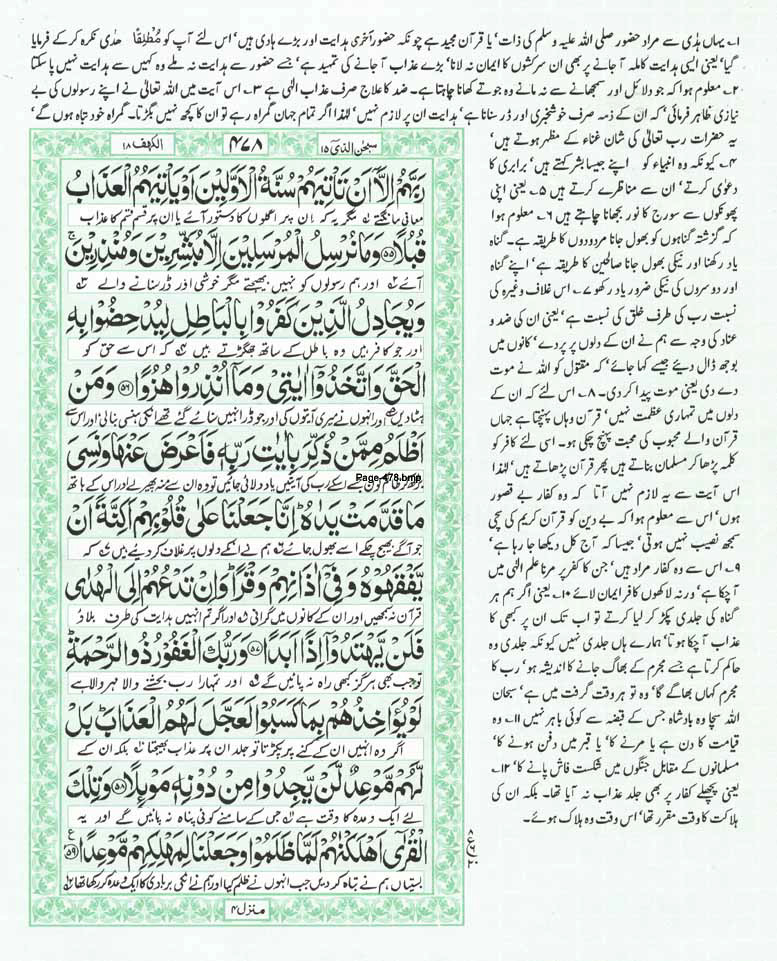 ۱؎ یہاں ہدٰی سے مراد حضور صلی اللہ علیہ وسلم کی ذات' یا قرآن مجید ہے چونکہ حضور آخری ہدایت اور بڑے ہادی ہیں' اس لئے آپ کو مُطْلِقًا ھدٰی نکرہ کر کے فرمایا
گیا' یعنی ایسی ہدایت کاملہ آ جانے پر بھی ان سرکشوں کا ایمان نہ لانا' بڑے عذاب آ جانے کی تمہید ہے' جسے حضور سے ہدایت نہ ملے وہ کہیں سے ہدایت نہیں پا سکتا
۲؎ معلوم ہوا کہ جو دلائل اور سمجھانے سے نہ مانے وہ جوتے کھانا چاہتا ہے۔ ضد کا علاج صرف عذاب الٰہی ہے ۳؎ اس آیت میں اللہ تعالیٰ نے اپنے رسولوں کی بے
نیازی ظاہر فرمائی' کہ ان کے ذمہ صرف خوشخبری اور ڈر سنانا ہے' ہدایت ان پر لازم نہیں' لہٰذا اگر تمام جہان گمراہ رہے تو ان کا کچھ نہیں بگڑتا۔ گمراہ خود تباہ ہوں گے'
یہ حضرات رب تعالیٰ کی شان غناء کے مظہر ہوتے ہیں'
۴؎ کیونکہ وہ انبیاء کو اپنے جیسا بشر کہتے ہیں' برابری کا
دعوٰی کرتے' ان سے مناظرے کرتے ہیں ۵؎ یعنی اپنی
پھونکوں سے سورج کا نور بجھانا چاہتے ہیں ۶؎ معلوم ہوا
کہ گزشتہ گناہوں کو بھول جانا مردودوں کا طریقہ ہے۔ گناہ
یاد رکھنا اور نیکی بھول جانا صالحین کا طریقہ ہے' اپنے گناہ
اور دوسروں کی نیکی ضرور یاد رکھو ۷؎ اس غلاف وغیرہ کی
نسبت رب کی طرف خلق کی نسبت ہے' یعنی ان کی ضد و
عناد کی وجہ سے ہم نے ان کے دلوں پر پردے' کانوں میں
بوجھ ڈال دیئے جیسے کہا جائے' کہ مقتول کو اللہ نے موت
دے دی یعنی موت پیدا کر دی۔ ۸؎ اس لئے کہ ان کے
دلوں میں تمہاری عظمت نہیں' قرآن وہاں پہنچتا ہے جہاں
قرآن والے محبوب کی محبت پہنچ چکی ہو۔ اسی لئے کافر کو
کلمہ پڑھا کر مسلمان بناتے ہیں پھر قرآن پڑھاتے ہیں' لہٰذا
اس آیت سے یہ لازم نہیں آتا کہ وہ کفار بے قصور
ہوں' اس سے معلوم ہوا کہ بے دین کو قرآن کریم کی سچی
سمجھ نصیب نہیں ہوتی' جیسا کہ آج کل دیکھا جا رہا ہے'
۹؎ اس سے وہ کفار مراد ہیں' جن کا کفر پر مرنا علم الٰہی میں
آ چکا ہے' ورنہ لاکھوں کافر ایمان لائے ۱۰؎ یعنی اگر ہم ہر
گناہ کی جلدی پکڑ کر لیا کرتے تو اب تک ان پر کبھی کا
عذاب آ چکا ہوتا' ہمارے ہاں جلدی نہیں کیونکہ جلدی وہ
حاکم کرتا ہے جسے مجرم کے بھاگ جانے کا اندیشہ ہو' رب کا
مجرم کہاں بھاگے گا' وہ تو ہر وقت گرفت میں ہے' سبحان
اللہ سچا وہ بادشاہ جس کے قبضہ سے کوئی باہر نہیں ۱۱؎ وہ
قیامت کا دن ہے یا مرنے کا' یا قبر میں دفن ہونے کا'
مسلمانوں کے مقابل جنگوں میں شکست فاش پانے کا' ۱۲؎
یعنی پچھلے کفار پر بھی جلد عذاب نہ آیا تھا۔ بلکہ ان کی
ہلاکت کا وقت مقرر تھا' اس وقت وہ ہلاک ہوئے۔
سبحٰن الذی ۱۵ ۴۷۸ الکہف ۱۸
رَبَّهُمْ اِلَّاۤ اَنْ تَاْتِیَهُمْ سُنَّةُ الْاَوَّلِیْنَ اَوْ یَاْتِیَهُمُ الْعَذَابُ
معافی مانگتے مگر یہ کہ ان پر اگلوں کا دستور آئے یا ان پر قسم قسم کا عذاب
قُبُلًا ۵۵ وَمَا نُرْسِلُ الْمُرْسَلِیْنَ اِلَّا مُبَشِّرِیْنَ وَمُنْذِرِیْنَ ۚ
آئے اور ہم رسولوں کو نہیں بھیجتے مگر خوشی اور ڈر سنانے والے
وَیُجَادِلُ الَّذِیْنَ كَفَرُوْا بِالْبَاطِلِ لِیُدْحِضُوْا بِهِ
اور جو کافر ہیں وہ باطل کے ساتھ جھگڑتے ہیں کہ اس سے حق کو
الْحَقَّ وَاتَّخَذُوْۤا اٰیٰتِیْ وَمَاۤ اُنْذِرُوْا هُزُوًا ۵۶ وَمَنْ
ہٹا دیں اور انہوں نے میری آیتوں کی اور جو ڈر انہیں سنائے گئے تھے انکی ہنسی بنا لی اور اس سے
اَظْلَمُ مِمَّنْ ذُكِّرَ بِاٰیٰتِ رَبِّهٖ فَاَعْرَضَ عَنْهَا وَنَسِیَ
بڑھ کر ظالم کون جسے اسکے رب کی آیتیں یاد دلائی جائیں تو وہ ان سے منہ پھیر لے اور اس کے ہاتھ
Page-478.bmp
مَا قَدَّمَتْ یَدٰهُ ؕ اِنَّا جَعَلْنَا عَلٰی قُلُوْبِهِمْ اَكِنَّةً اَنْ
جو آگے بھیج چکے اسے بھول جائے ہم نے انکے دلوں پر غلاف کر دیئے ہیں کہ
یَّفْقَهُوْهُ وَفِیْۤ اٰذَانِهِمْ وَقْرًا ؕ وَاِنْ تَدْعُهُمْ اِلَی الْهُدٰی
قرآن نہ سمجھیں اور ان کے کانوں میں گرانی اور اگر تم انہیں ہدایت کی طرف بلاؤ
فَلَنْ یَّهْتَدُوْۤا اِذًا اَبَدًا ۵۷ وَرَبُّكَ الْغَفُوْرُ ذُو الرَّحْمَةِ ؕ
تو جب بھی ہرگز کبھی راہ نہ پائیں گے اور تمہارا رب بخشنے والا مہر والا ہے
لَوْ یُؤَاخِذُهُمْ بِمَا كَسَبُوْا لَعَجَّلَ لَهُمُ الْعَذَابَ ؕ بَلْ
اگر وہ انہیں ان کے کئے پر پکڑتا تو جلد ان پر عذاب بھیجتا بلکہ ان کے
لَّهُمْ مَّوْعِدٌ لَّنْ یَّجِدُوْا مِنْ دُوْنِهٖ مَوْئِلًا ۵۸ وَتِلْكَ
لئے ایک وعدہ کا وقت ہے جس کے سامنے کوئی پناہ نہ پائیں گے اور یہ
الْقُرٰۤی اَهْلَكْنٰهُمْ لَمَّا ظَلَمُوْا وَجَعَلْنَا لِمَهْلِكِهِمْ مَّوْعِدًا ۵۹
بستیاں ہم نے تباہ کر دیں جب انہوں نے ظلم کیا اور ہم نے انکی بربادی کا ایک وعدہ کر رکھا تھا
منزل ۴